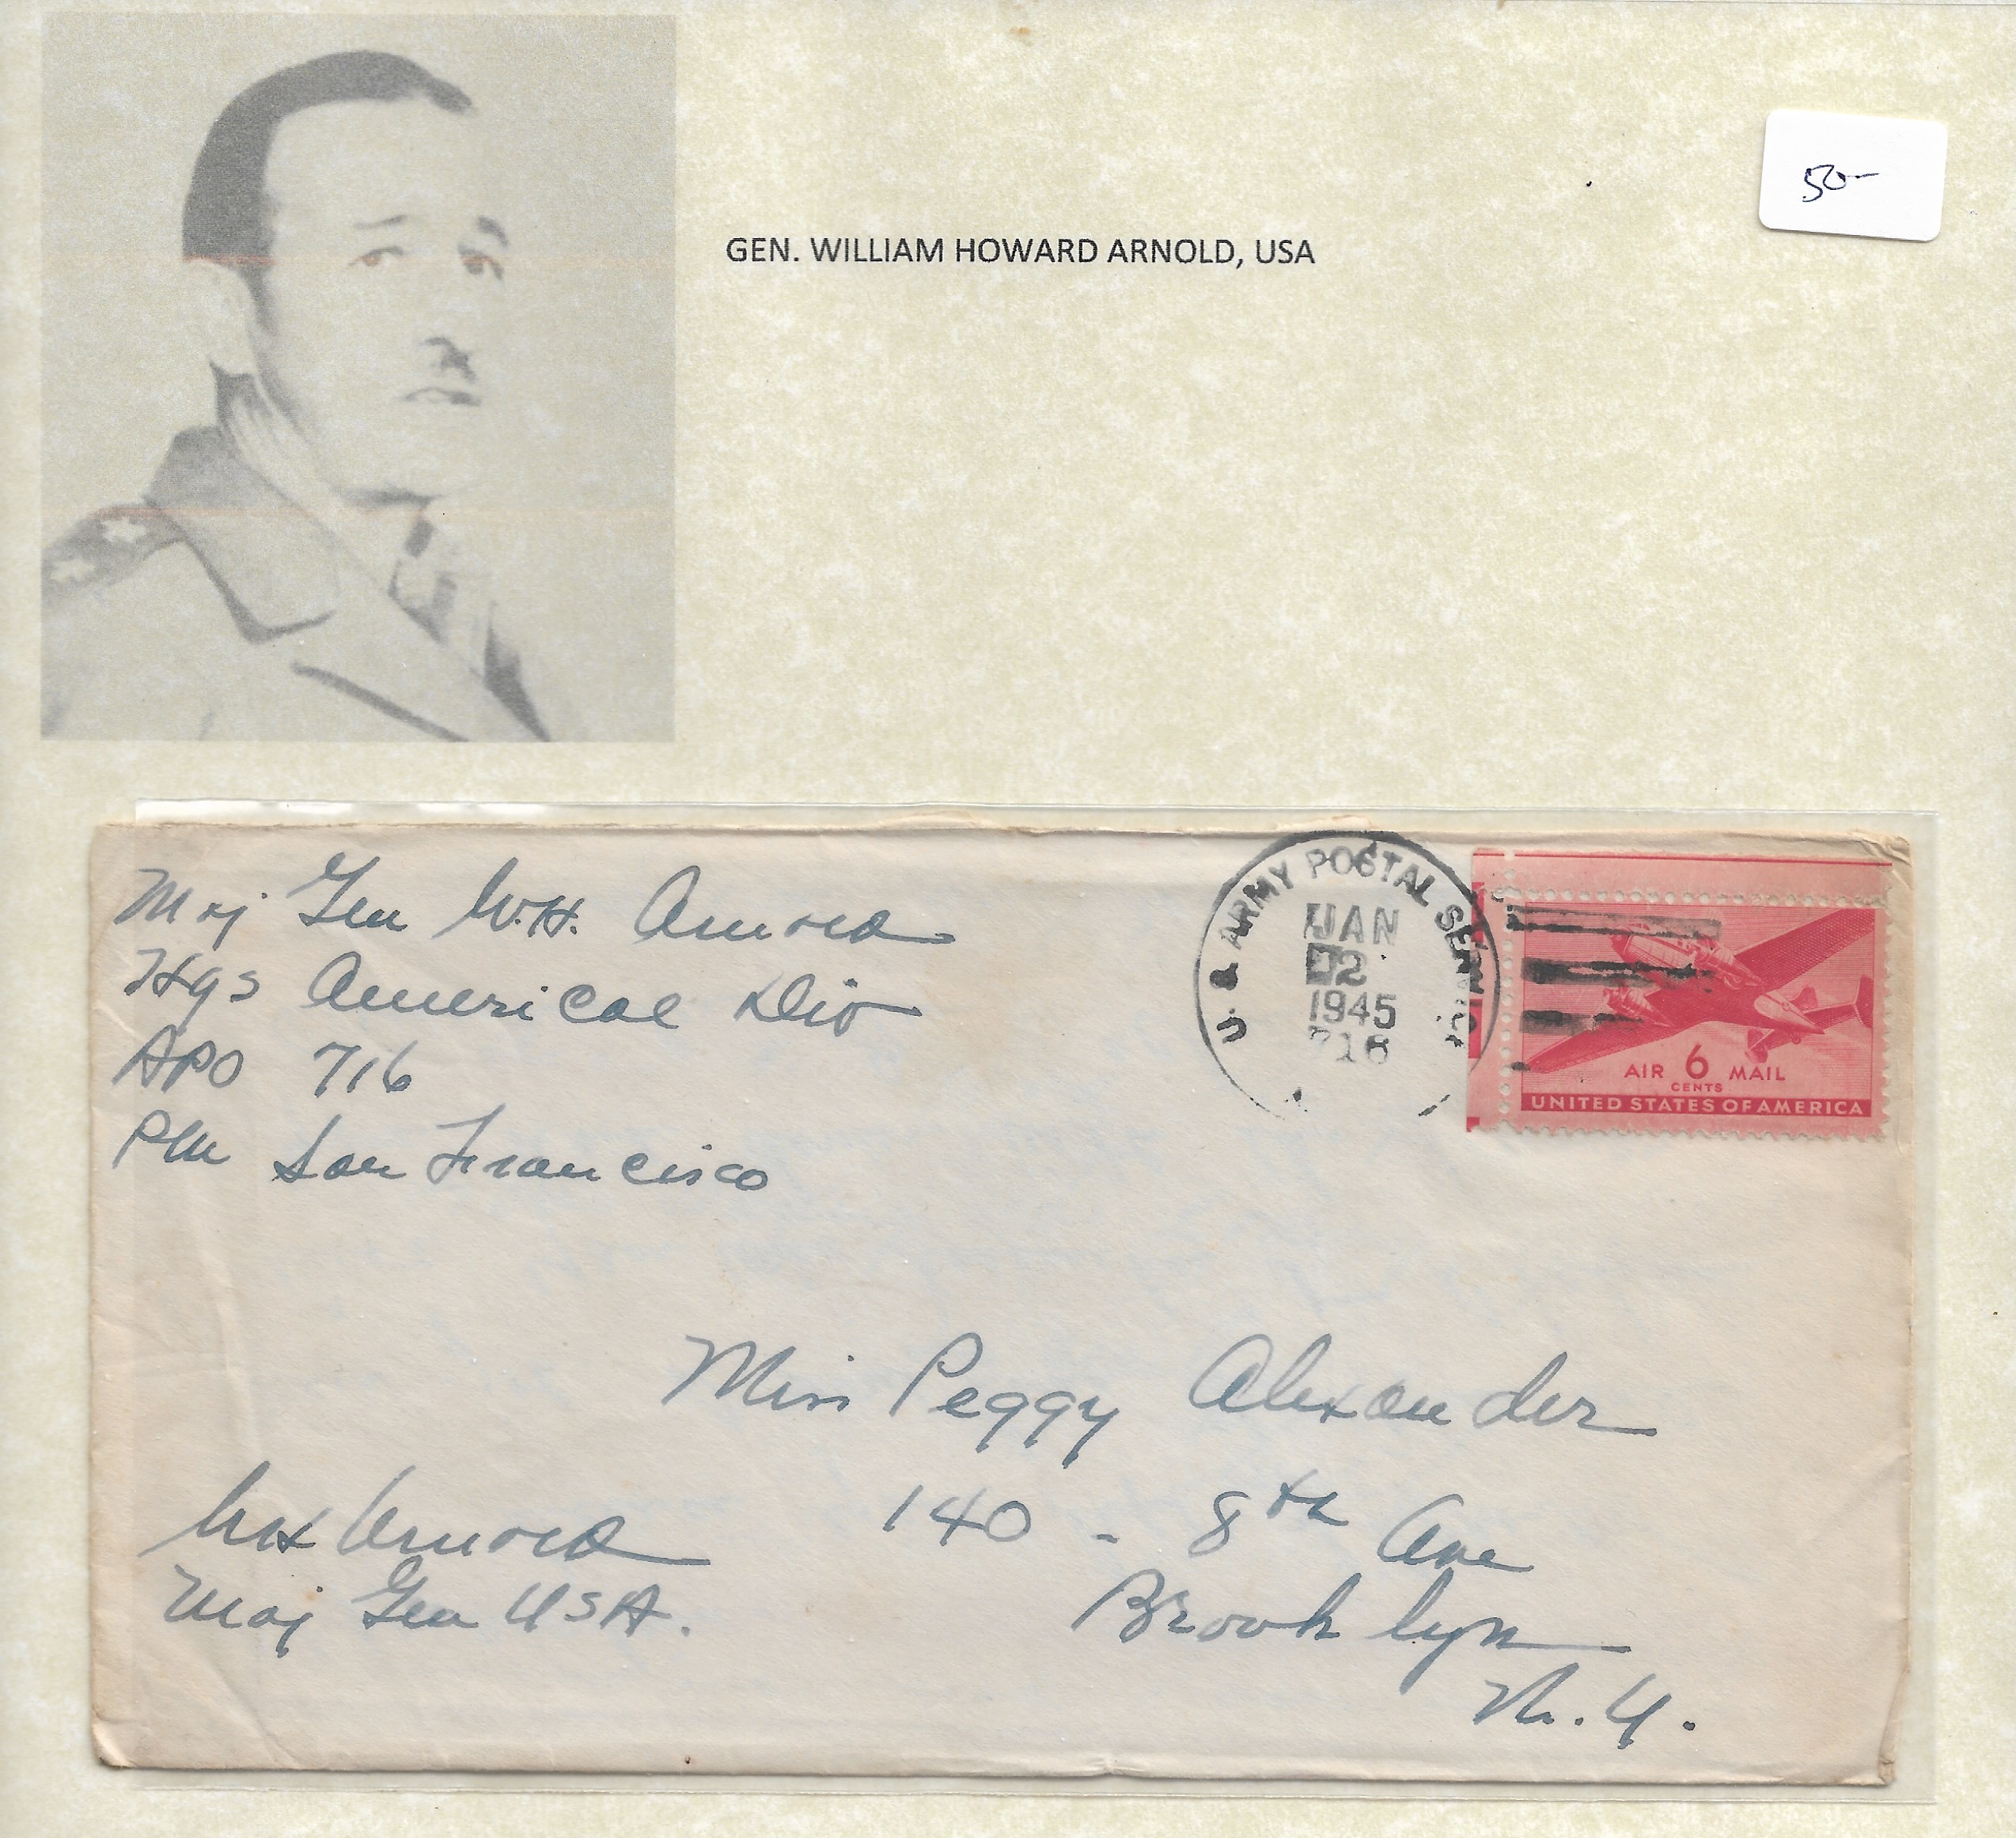 GEN. WILLIAM HOWARD ARNOLD, USA
50-
Maj Gen W.H. Arnold
Hqs Americal Div
APO 716
PM San Francisco
U.S. ARMY POSTAL SERVICE
JAN
2
1945
716
AIR 6 MAIL
CENTS
UNITED STATES OF AMERICA
Miss Peggy Alexander
140 - 8th Ave
Brooklyn
N.Y.
WH Arnold
Maj Gen USA.